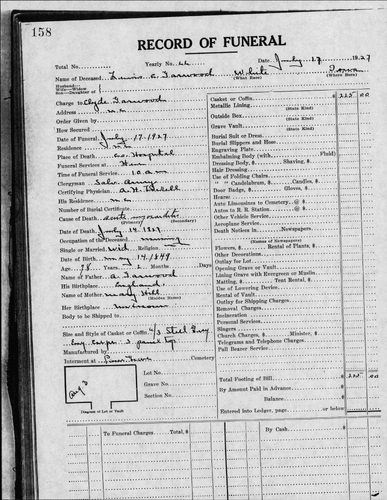 158
RECORD OF FUNERAL
Total No. Yearly No. 66 Date July 17 1927
Name of Deceased Lewis C. Farwood White Iowa
(What Race) (Where Born)
Husband of
Widow of
Son or Daughter of
Charge to Clyde Farwood
Address m.c.
Order Given by
How Secured
Date of Funeral July-17-1927
Residence m.c.
Place of Death co. Hospital
Funeral Services at Home
Time of Funeral Service 10 a.m
Clergyman Salv. Army
Certifying Physician
His Residence m.c.
Number of Burial Certificate
Cause of Death acute myocarditis
(Primary) (Secondary)
Date of Death July 14 1927
Occupation of the Deceased
Single or Married Wid Religion
Date of Birth may 14 1849
Age 78 Years 2 Months Days
Name of Father Farwood
His Birthplace England
Name of Mother Mary Hill
(Maiden Name)
Her Birthplace
Body to be Shipped to
Size and Style of Casket or Coffin 6/3 Steel Grey
Manufactured by
Interment at Cemetery
Lot No.
Grave No.
Section No.
Diagram of Lot or Vault
Casket or Coffin $ 225 00
Metallic Lining
(State Kind)
Outside Box
(State Kind)
Grave Vault
(State Kind)
Burial Suit or Dress
Burial Slippers and Hose
Engraving Plate
Embalming Body (with Fluid)
Dressing Body, $ Shaving, $
Hair Dressing
Use of Folding Chairs
" " Candelabrum, $ Candles, $
Door Badge, $ Gloves, $
Hearse
Auto Limousines to Cemetery @ $
Autos to R. R. Station @ $
Other Vehicle Service
Aeroplane Service
Death Notices in Newspapers
(Names of Newspapers)
Flowers, $ Rental of Plants, $
Other Decorations
Outlay for Lot
Opening Grave or Vault
Lining Grave with Evergreen or Muslin
Matting, $ Tent Rental, $
Use of Lowering Device
Rental of Vault
Outlay for Shipping Charges
Removal Charges
Incineration
Personal Services
Singers
Church Charges, $ Minister, $
Telegrams and Telephone Charges
Pall Bearer Service
Total Footing of Bill $ 225 00
By Amount Paid in Advance
Balance
Entered into Ledger, page or below
To Funeral Charges Total, $ By Cash $